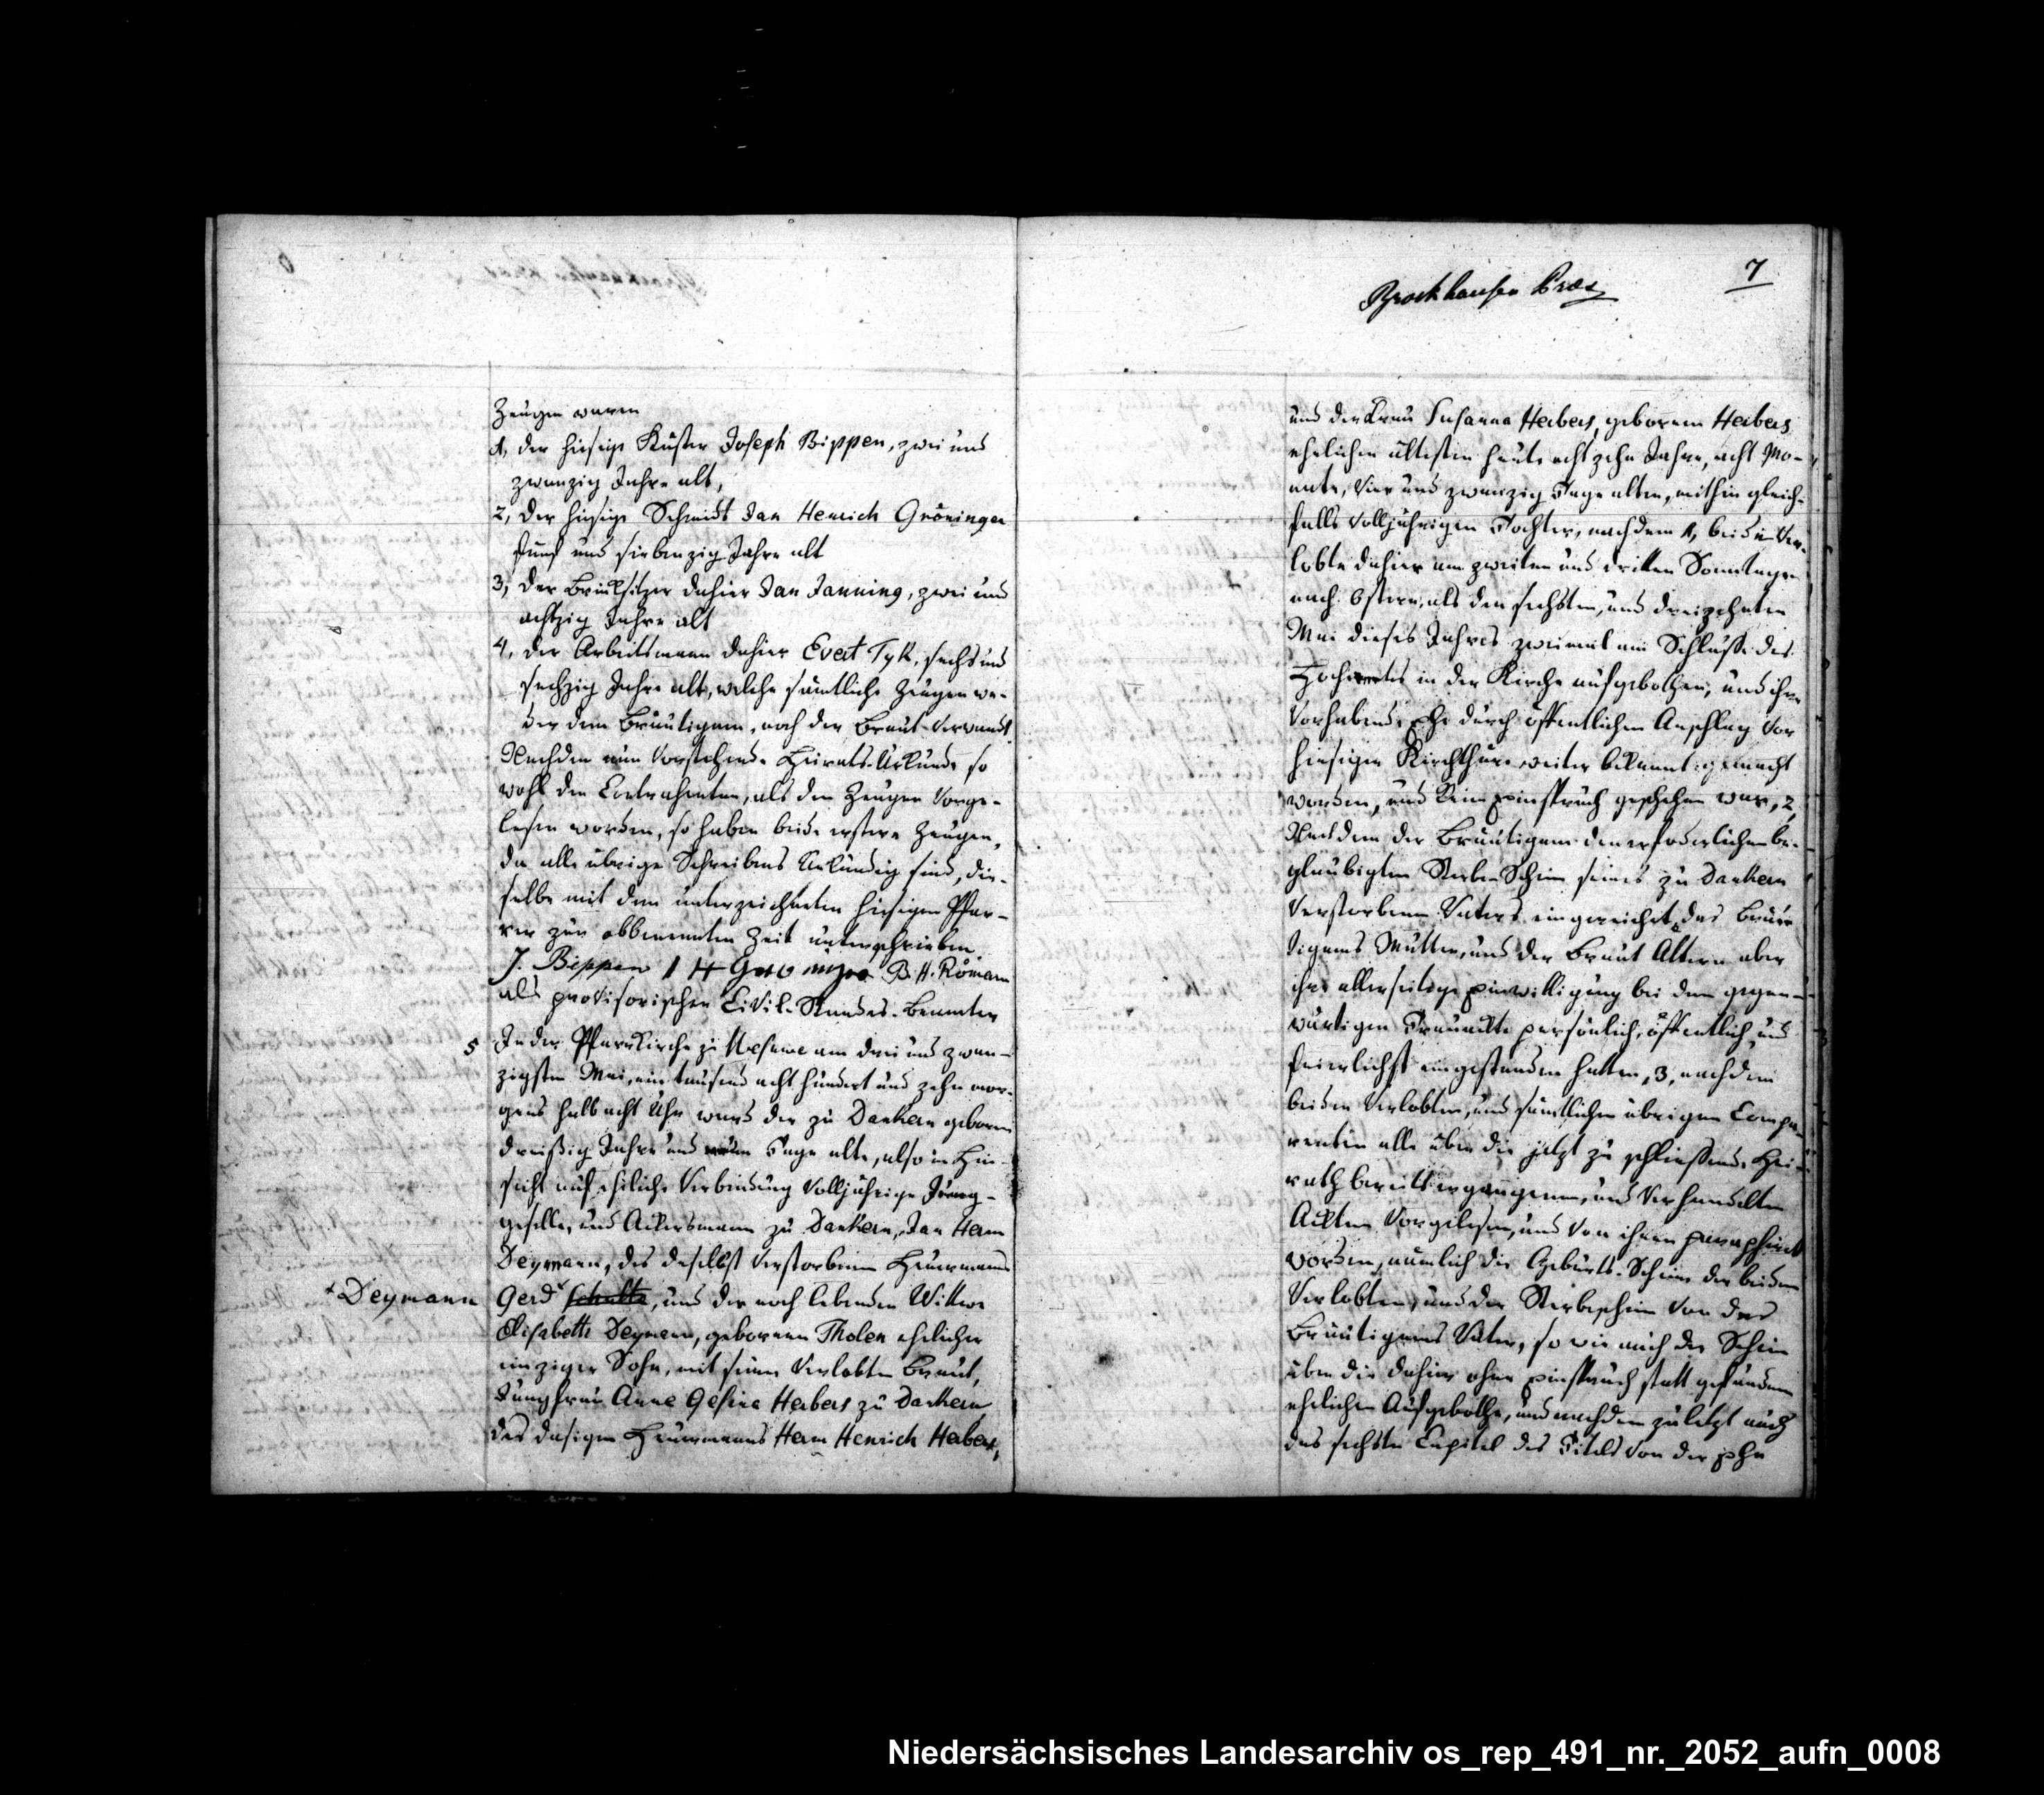 Zeugen waren
1, der hiesige Küster Joseph Bippen, zwei und
zwanzig Jahre alt,
2, der hiesige Schmidt Jan Henrich Gröninger
fünf und siebenzig Jahre alt
3, der Brinksitzer dahier Jan Janning, zwei und
achtzig Jahre alt
4, der Arbeitsmann dahier Evert Tyk, sechs und
sechzig Jahre alt, welche sämtliche Zeugen we-
der dem Bräutigam, noch der Braut verwandt.
Nachdem nun vorstehende Heirats-Urkunde so
wohl den Contrahenten, als den Zeugen vorge-
lesen worden, so haben beide erstere Zeugen,
da alle übrige Schreibens unkündig sind, die-
selbe mit dem unterzeichneten hiesigen Pfar-
rer zur obbenennten Zeit unterschrieben
J. Bippen J H Gröninger B. H. Römann
als provisorischer Civil-Standes-Beamter
5 In der Pfarrkirche zu Wesuwe am drei und zwan-
zigsten Mai, ein tausend acht hundert und zehn mor-
gens halb acht Uhr ward der zu Dankern geborne
dreißig Jahre und neun Tage alte, also in Hin-
sicht auf eheliche Verbindung volljährige Jung-
geselle, und Ackersmann zu Dankern, Jan Herm
Deymann, des daselbst verstorbenen Heuermanns
+ Deymann
Gerd + Schulte, und der noch lebenden Wittwe
Elisabeth Deymann, gebornen Tholen ehelicher
einziger Sohn, mit seiner verlobten Braut,
Jungfrau Anne Gesina Herbers zu Dankern,
des dasigen Heuermanns Herm Henrich Herbers,
Brockhausen Præs
7
und der Frau Susanna Herbers, gebornen Herbers
ehelichen ältesten heute acht zehn Jahre, acht Mo-
nate, vier und zwanzig Tage alten, mithin gleich-
falls volljährigen Tochter, nachdem 1, beide Ver-
lobte dahier am zweiten und dritten Sonntage
nach Ostern, als den sechsten, und dreizehnten
Mai dieses Jahres zweimal am Schlusse des
Hochamtes in der Kirche aufgebothen, und ihre
vorhabende Ehe durch öffentlichen Anschlag vor
hiesiger Kirchthüre weiter bekannt gemacht
worden, und kein Einspruch geschehen war, 2,
Nachdem der Bräutigam den erforderlichen be-
glaubigten Sterbe-Schein seines zu Dankern
verstorbenen Vaters eingereicht, des Bräu-
tigams Mutter, und der Braut Ältern aber
ihre allerseitige Einwilligung bei dem gegen-
wärtigen Trauackte persönlich, öffentlich und
feierlichst eingestanden hatten, 3, nachdem
beiden Verlobten, und sämtlichen übrigen Compa-
renten alle über die jetzt zu schließende Hei-
rath bereits ergangenen, und verhandelten
Ackten vorgelesen, und von ihnen paraphirt
worden, nämlich die Geburts-Scheine der beiden
Verlobten, und der Sterbeschein von des
Bräutigams Vater, so wie auch der Schein
über die dahier ohne Einspruch statt gefundenen
ehelichen Aufgebothe, und nachdem zuletzt auch
das sechste Capitel des Titels von der Ehe
Niedersächsisches Landesarchiv os_rep_491_nr._2052_aufn_0008